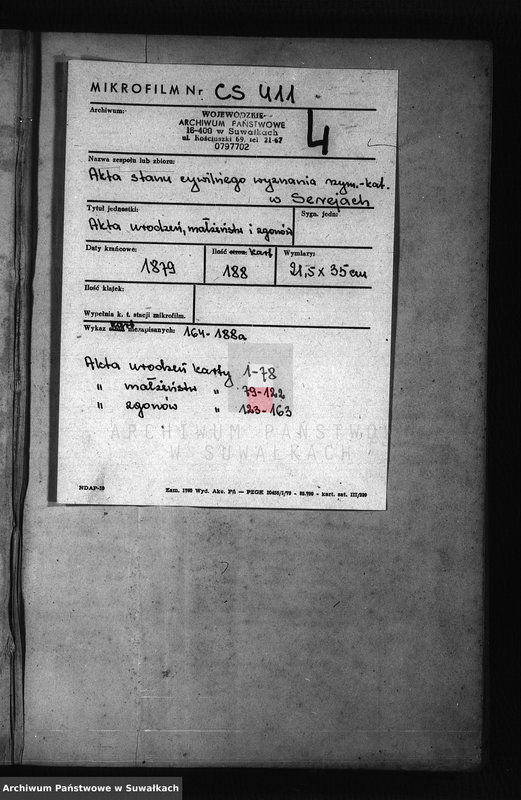 MIKROFILM Nr CS 411
Archiwum:
WOJEWÓDZKIE
ARCHIWUM PAŃSTWOWE
16-400 w Suwałkach
ul. Kościuszki 69, tel 21-67
0797702
4
Nazwa zespołu lub zbioru:
Akta stanu cywilnego wyznania rzym.-kat.
w Serejach
Tytuł jednostki:
Sygn. jedn.
Akta urodzeń, małżeństw i zgonów
Daty krańcowe:
Ilość stron: kart
Wymiary:
1879
188
21,5 x 35 cm
Ilość klatek:
Wypełnia k. t. stacji mikrofilm.
Wykaz kart niezapisanych: 164-188a
Akta urodzeń karty 1-78
" małżeństw " 79-122
" zgonów " 123-163
ARCHIWUM PAŃSTWOWE
W SUWAŁKACH
NDAP-19
Zam. 1760 Wyd. Akc. Pń — PZGK
Archiwum Państwowe w Suwałkach